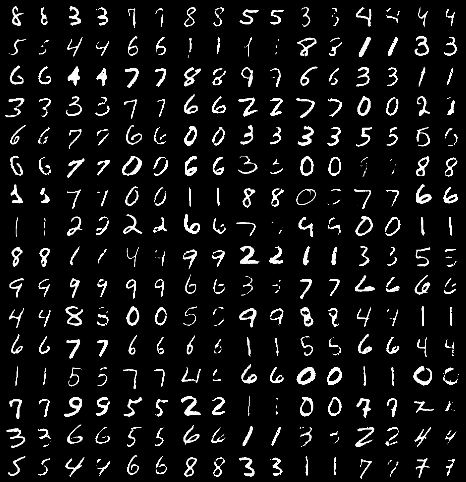 8 8 3 3 7 7 8 8 5 5 3 3 4 4 4 4
5 5 4 4 6 6 1 1 1 8 8 1 1 3 3
6 6 4 4 7 7 8 8 9 9 6 6 3 3 1 1
3 3 3 3 7 7 6 6 2 2 7 7 0 0 2
6 6 7 7 6 6 0 0 3 3 3 3 5 5 5
6 6 7 7 0 0 6 6 3 0 0 9 8 8
1 7 7 0 0 1 1 8 8 0 7 7 6 6
1 1 2 2 2 2 6 6 7 9 9 0 0 1 1
8 8 1 1 4 4 9 9 2 2 1 1 3 3 5 5
9 9 9 9 9 9 6 6 3 7 7 6 6 6 6
4 4 8 0 0 5 9 9 8 8 4 4 1 1
6 6 7 7 6 6 6 6 1 1 5 5 6 6 4 4
1 1 5 5 7 7 4 6 6 0 0 1 1 0 0
7 7 9 9 5 5 2 2 1 0 0 7 7 2
3 3 6 6 5 5 6 6 1 1 3 2 2 4 4
5 5 4 4 6 6 8 8 3 3 1 1 7 7 7